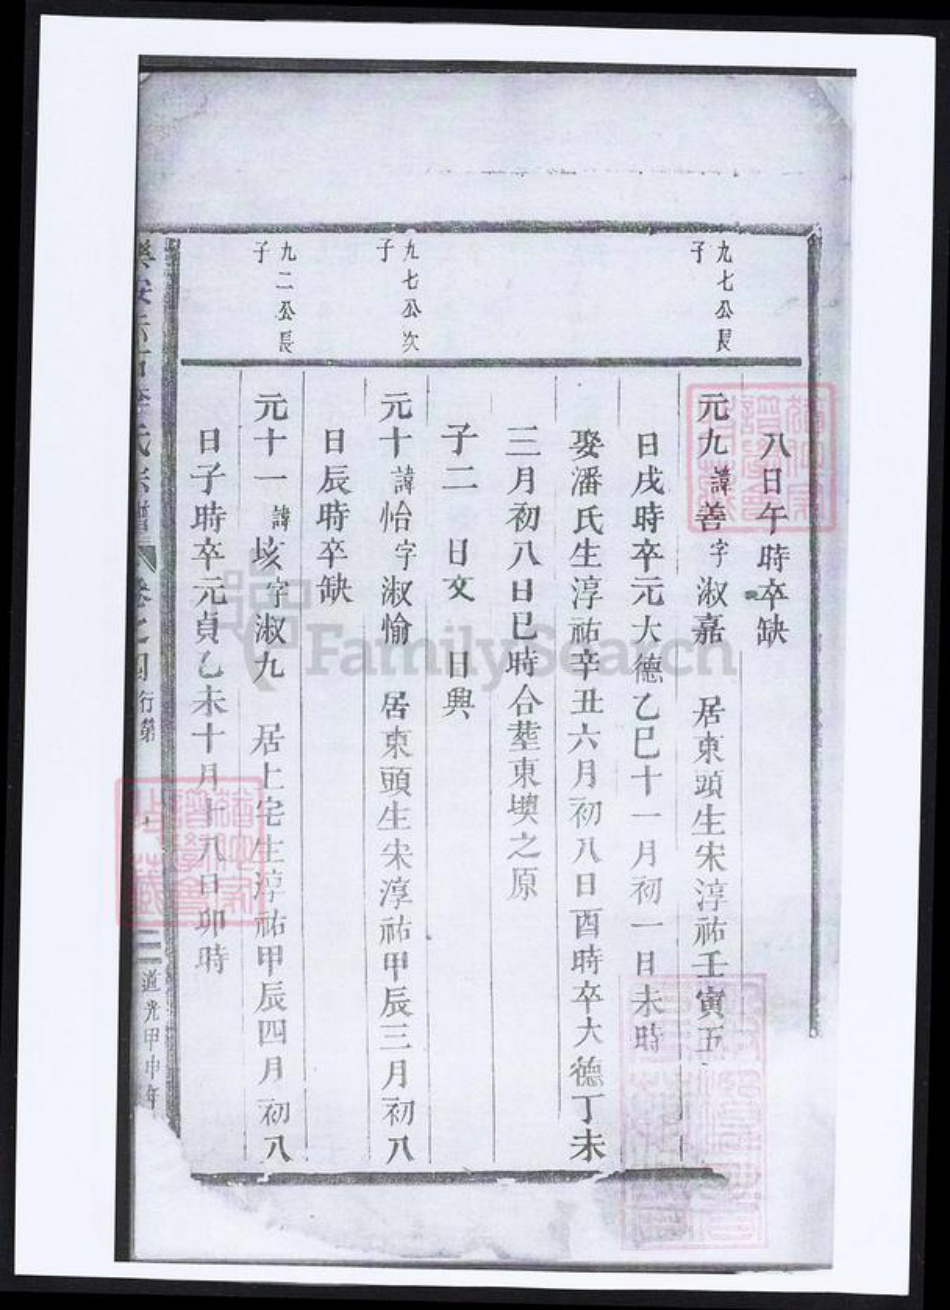 八日午時卒缺
九七公長
子
元九諱善字淑嘉 居東頭生宋淳祐壬寅五
日戌時卒元大德乙巳十一月初一日未時
娶潘氏生淳祐辛丑六月初八日酉時卒大德丁未
三月初八日巳時合塟東墺之原
子二 日文 日興
九七公次
子
元十諱怡字淑愉 居東頭生宋淳祐甲辰三月初八
日辰時卒缺
九二公長
子
元十一諱垓字淑九 居上宅生淳祐甲辰四月初八
日子時卒元貞乙未十月十八日卯時
氏宗譜 卷之四 行第 道光甲申年
FamilySearch